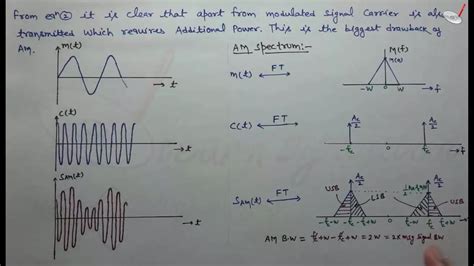 From eqn② it is clear that apart from modulated Signal Carrier is also
transmitted which requires Additional Power. This is the biggest drawback of
AM.
AM Spectrum:-
m(t)
t
m(t) FT
M(f)
M(0)
-W 0 W f
c(t)
t
c(t) FT
Ac/2 Ac/2
-fc fc f
SAM(t)
t
SAM(t) FT
USB Ac/2 LSB Ac/2 USB
-fc-W -fc -fc+W fc-W fc fc+W f
AM B.W = fc+W-fc+W = 2W = 2 x msg signal BW